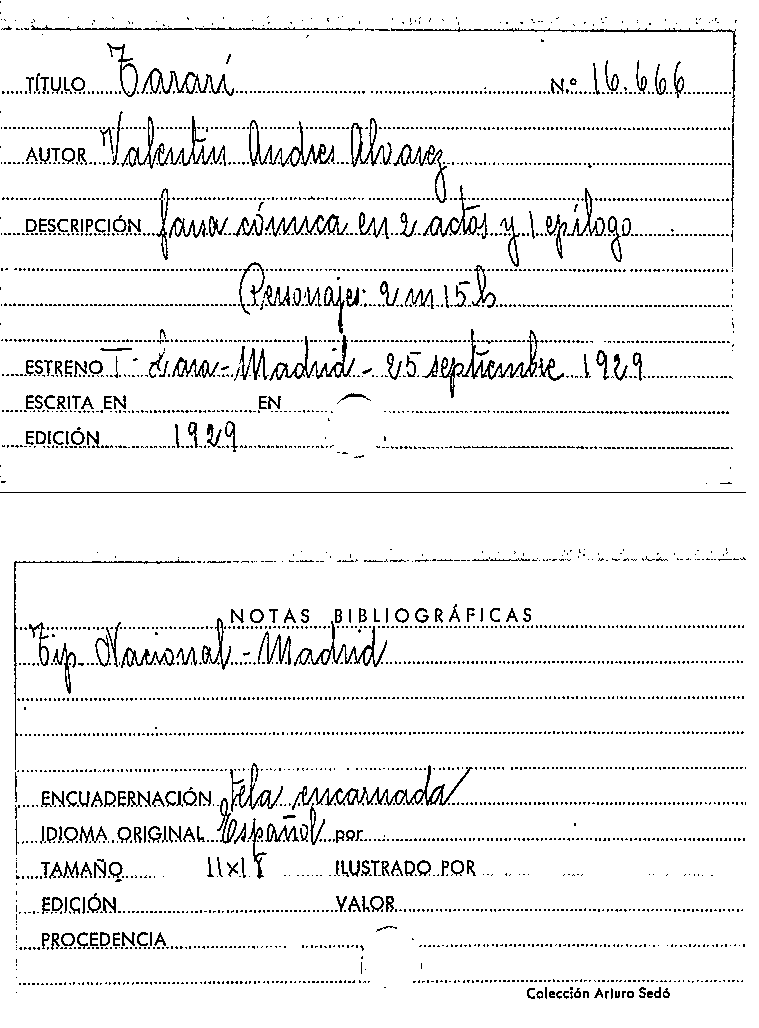 TÍTULO Tararí Nº 16.666
AUTOR Valentin Andres Alvarez
DESCRIPCIÓN farsa cómica en 2 actos y 1 epílogo
Personajes: 2 m 15 h
ESTRENO T. Lara - Madrid - 25 septiembre 1929
ESCRITA EN EN
EDICIÓN 1929
NOTAS BIBLIOGRÁFICAS
Tip. Nacional - Madrid
ENCUADERNACIÓN tela encarnada
IDIOMA ORIGINAL Español por
TAMAÑO 11x18 ILUSTRADO POR
EDICIÓN VALOR
PROCEDENCIA
Colección Arturo Sedó